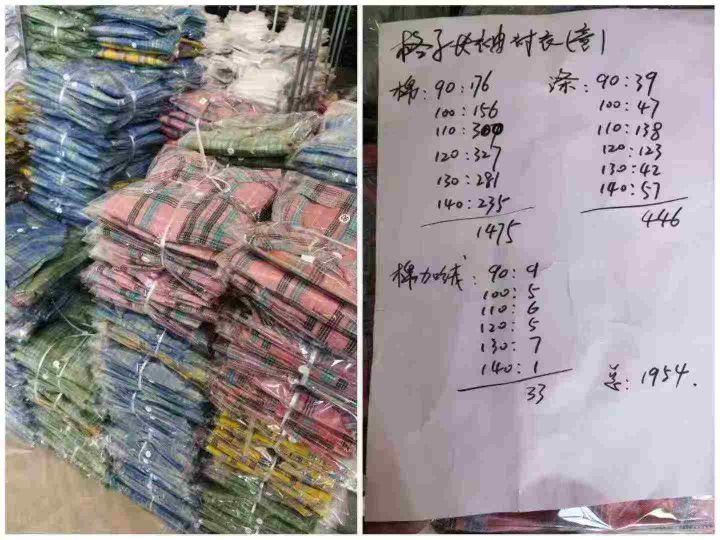 格子长袖衬衣(童)
棉: 90:176
100:156
110:300
120:327
130:281
140:235
1475
涤: 90:39
100:47
110:138
120:123
130:42
140:57
446
棉加绒: 90:9
100:5
110:6
120:5
130:7
140:1
33
总: 1954.